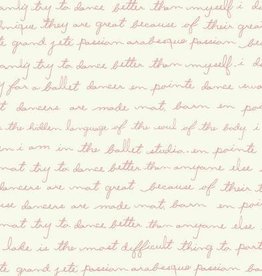 and i try to dance better than myself. i d
hnique. they are great because of their
grand jete passion arabesque passion be
and i try to dance better than myself. i d
for a ballet dancer en pointe dance
dancers are made not, born en po
the hidden language of the soul of the body i
i am in the ballet studio. en pointe
not try to dance better than anyone else
dancers are not great because of their t
dancers are made not, born en po
not try to dance better than anyone else
lake is the most difficult thing to
grand jete passion arabesque passion